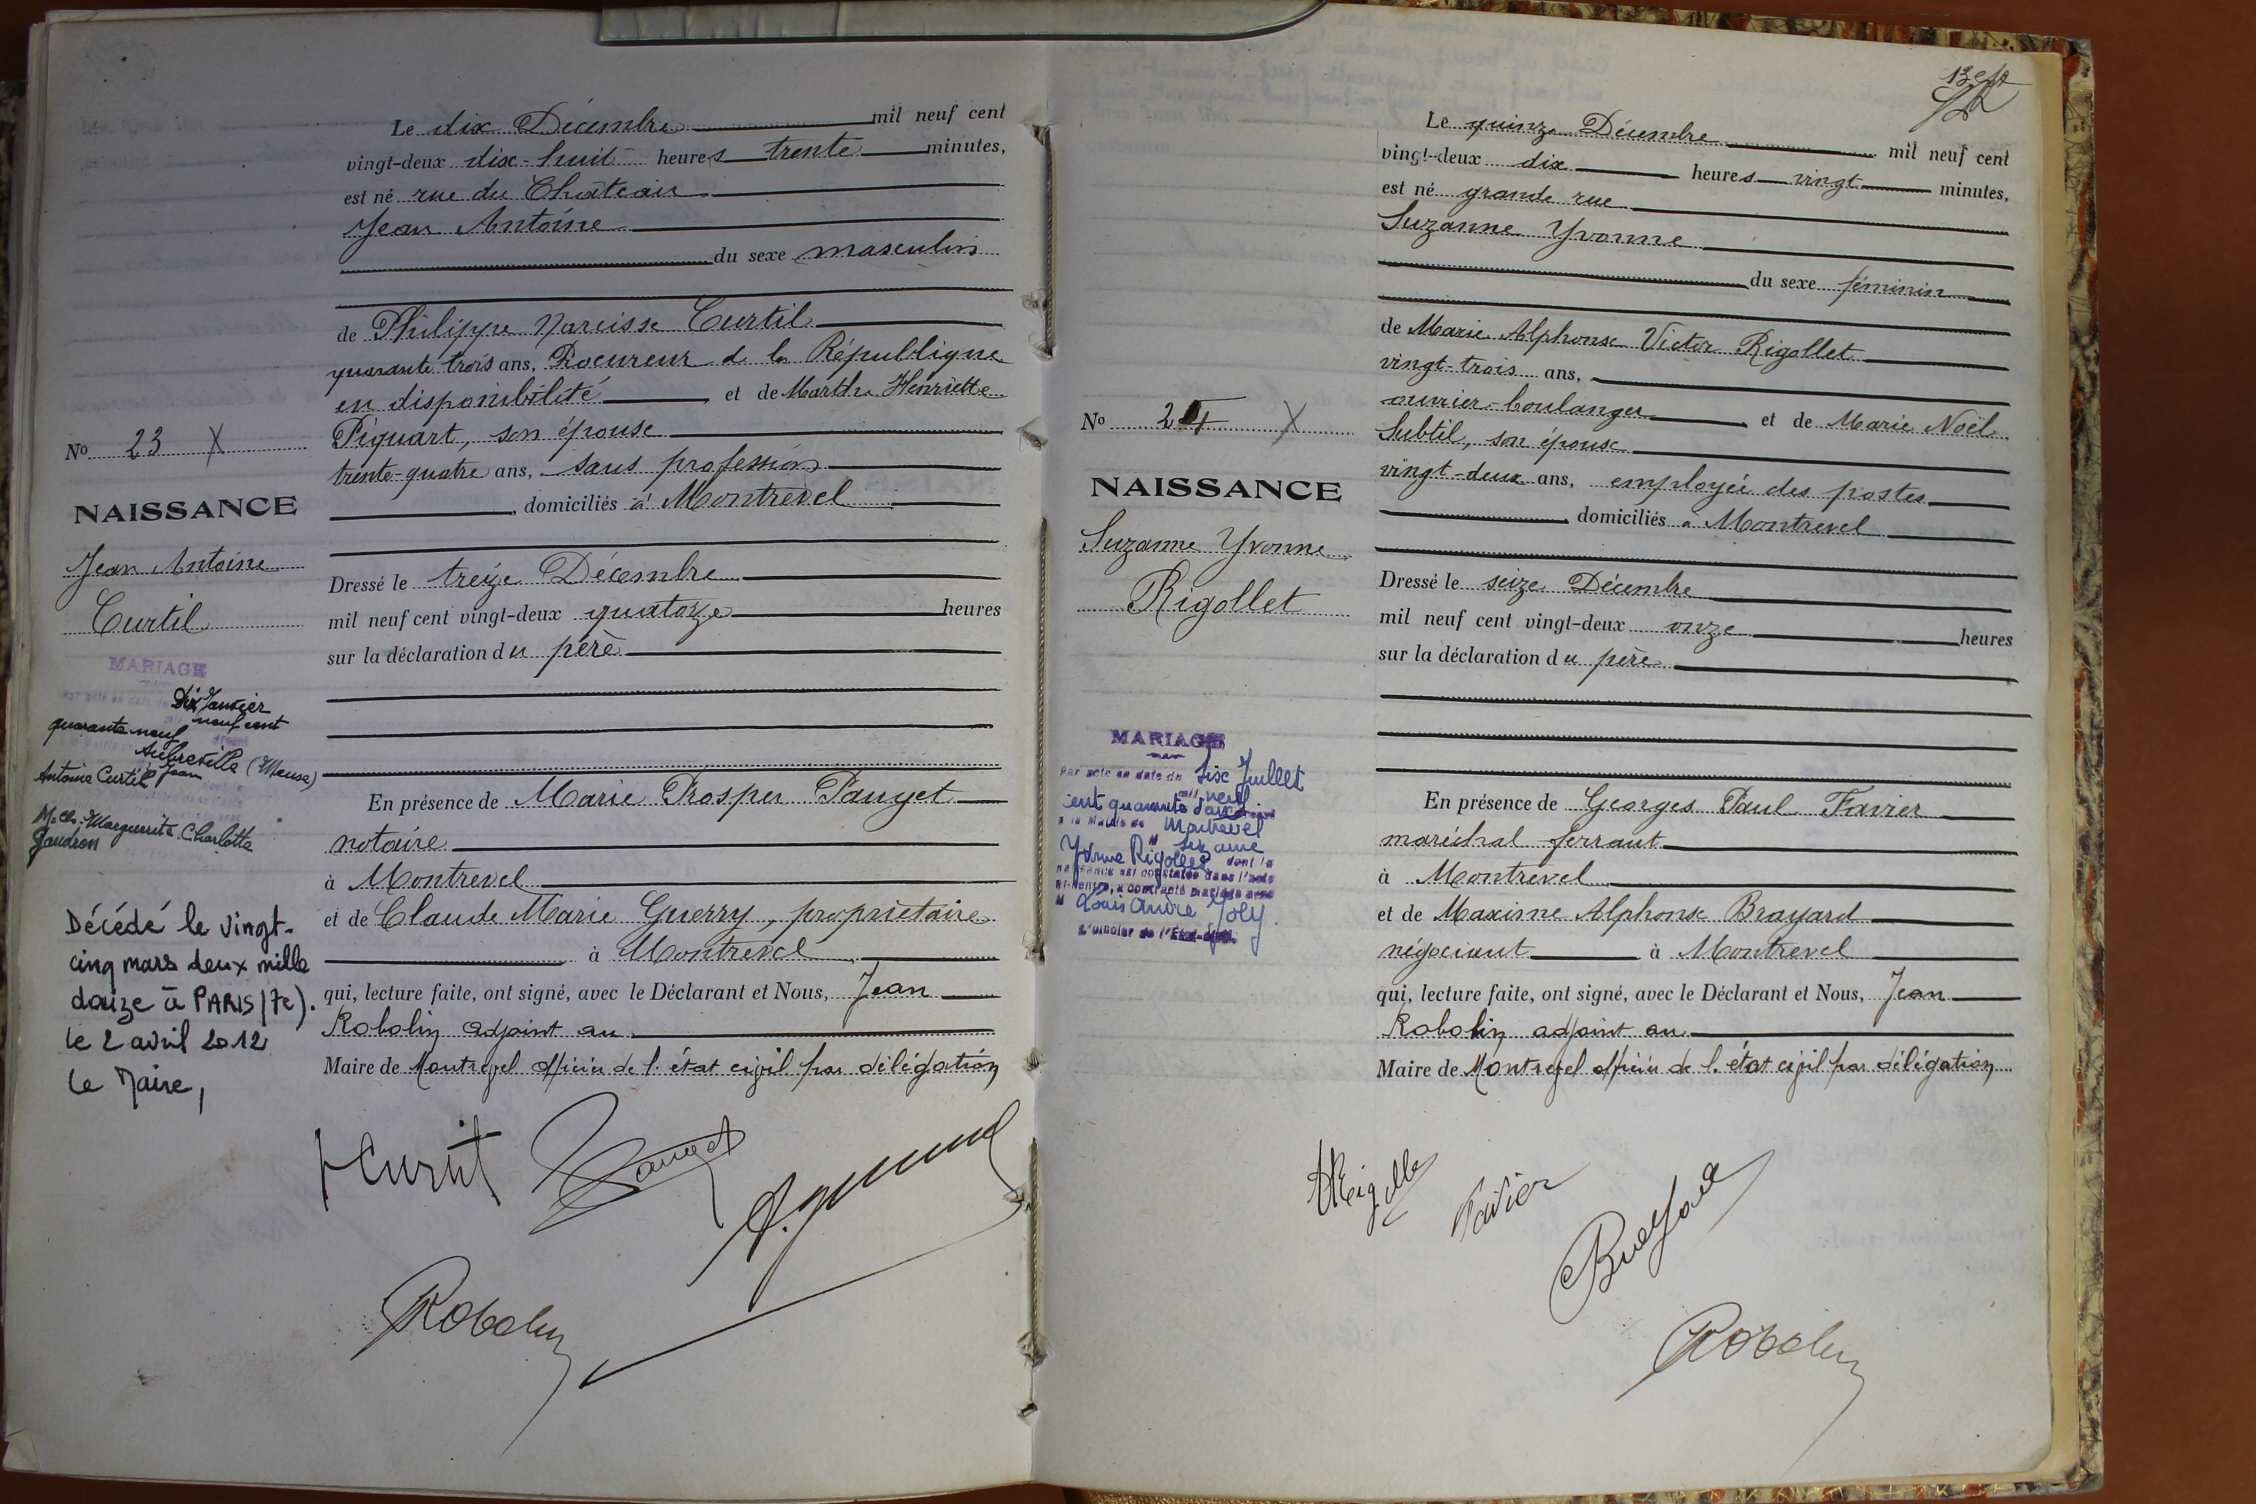 Le dix Décembre mil neuf cent
vingt-deux dix-huit heures trente minutes,
est né rue du Château
Jean Antoine
du sexe masculin
de Philippe Narcisse Curtil
quarante trois ans, Procureur de la République
en disponibilité et de Marthe Henriette
Piquart, son épouse
trente-quatre ans, sans profession
domiciliés à Montrevel
Dressé le treize Décembre
mil neuf cent vingt-deux quatorze heures
sur la déclaration du père
En présence de Marie Prosper Pauget
notaire
à Montrevel
et de Claude Marie Guerry, propriétaire
à Montrevel
qui, lecture faite, ont signé, avec le Déclarant et Nous, Jean
Robolin adjoint au
Maire de Montrevel officier de l'état civil par délégation
No 23 X
NAISSANCE
Jean Antoine
Curtil
MARIAGE
Dix Janvier
neuf cent
quarante neuf
Aubreville (Meuse)
Jean
Antoine Curtil
Marguerite Charlotte
Gaudron
Décédé le vingt-
cinq mars deux mille
douze à PARIS (7e).
le 2 avril 2012
Le Maire,
Curtil
Pauget
Robolin
Le quinze Décembre mil neuf cent
vingt-deux dix heures vingt minutes,
est né grande rue
Suzanne Yvonne
du sexe féminin
de Marie Alphonse Victor Rigollet
vingt-trois ans,
ouvrier-boulanger et de Marie Noël
Subtil, son épouse
vingt-deux ans, employée des postes
domiciliés à Montrevel
Dressé le seize Décembre
mil neuf cent vingt-deux onze heures
sur la déclaration du père
En présence de Georges Paul Favier
maréchal ferrant
à Montrevel
et de Maxime Alphonse Brayard
négociant à Montrevel
qui, lecture faite, ont signé, avec le Déclarant et Nous, Jean
Robolin adjoint au
Maire de Montrevel officier de l'état civil par délégation
No 24 X
NAISSANCE
Suzanne Yvonne
Rigollet
MARIAGE
Par acte en date du six Juillet
mil neuf
cent quarante
à la Mairie de Montrevel
M Suzanne
Yvonne Rigollet dont la
naissance est constatée dans l'acte
ci-contre, a contracté mariage avec
M Louis André Joly.
L'officier de l'État-civil
Rigollet
Favier
Brayard
Robolin